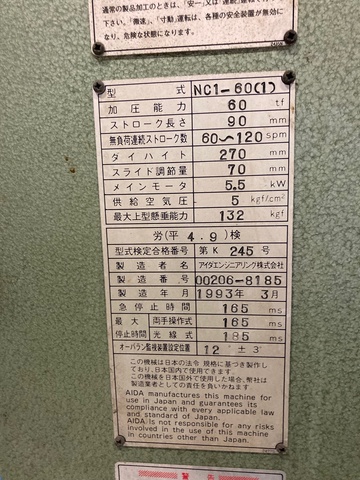 通常の製品加工のときは、「安一」又は「連続」運転で行
下さい。「微速」、「寸動」運転は、各種の安全装置が無効に
なり、危険な状態になります。
型式 NC1-60(1)
加圧能力 60 tf
ストローク長さ 90 mm
無負荷連続ストローク数 60〜120 spm
ダイハイト 270 mm
スライド調節量 70 mm
メインモータ 5.5 kW
供給空気圧 5 kgf/cm²
最大上型懸垂能力 132 kgf
労(平 4.9)検
型式検定合格番号 第 K 245 号
製造者名 アイダエンジニアリング株式会社
製造番号 00206-8185
製造年月 1993年 3月
急停止時間 165 ms
最大停止時間 両手操作式 165 ms
光線式 185 ms
オーバラン監視装置設定位置 12° ± 3°
この機械は日本の法令 規格に基づき製作し
ており、日本国内で使用できます。
この機械を日本国外で使用した場合、弊社は
製造業者としての責任を負いかねます。
AIDA manufactures this machine for
use in Japan and guarantees its
compliance with every applicable law
and standard of Japan.
AIDA is not responsible for any risks
involved in the use of this machine
in countries other than Japan.
警告